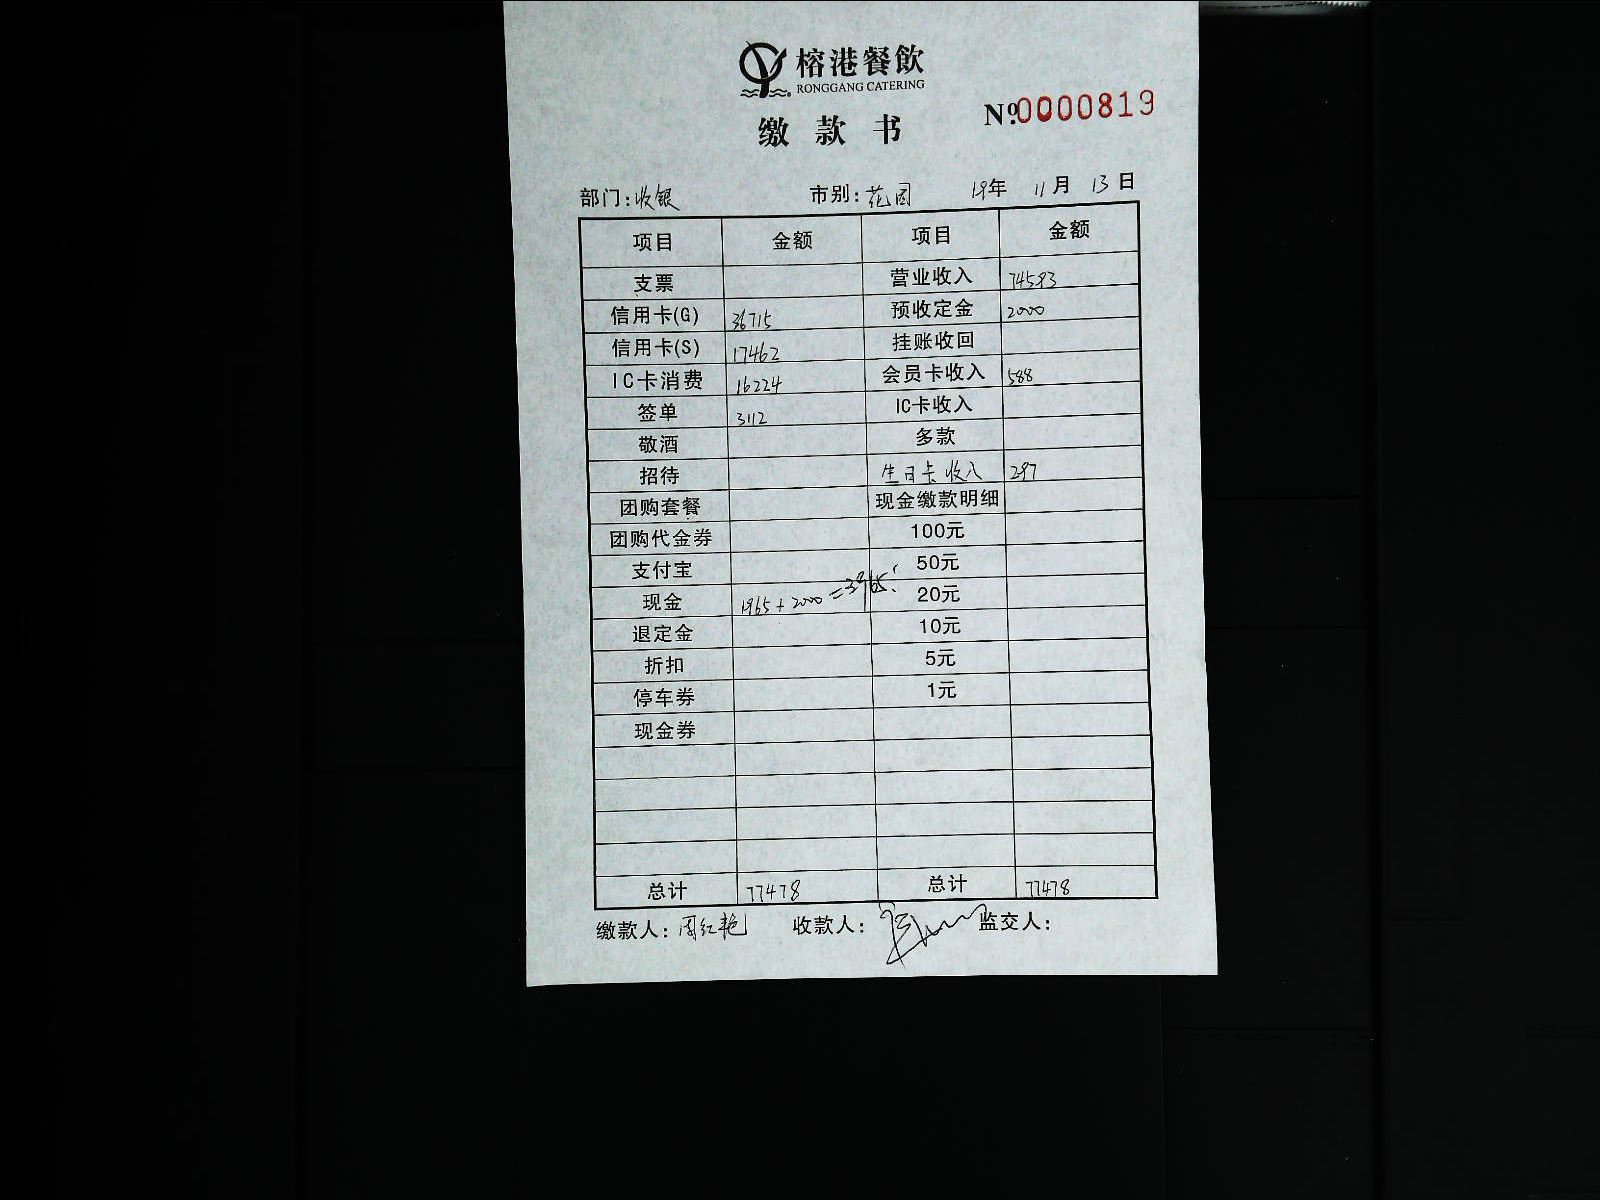 榕港餐飲
RONGGANG CATERING
缴款书
№0000819
部门:收银 市别:花园 19年 11月 13日
项目 金额 项目 金额
支票 营业收入 74593
信用卡(G) 36715 预收定金 2000
信用卡(S) 17462 挂账收回
IC卡消费 16224 会员卡收入 588
签单 3112 IC卡收入
敬酒 多款
招待 生日卡收入 297
团购套餐 现金缴款明细
团购代金券 100元
支付宝 50元
现金 1965+2000=3965. 20元
退定金 10元
折扣 5元
停车券 1元
现金券
总计 77478 总计 77478
缴款人:周红艳 收款人: 监交人: